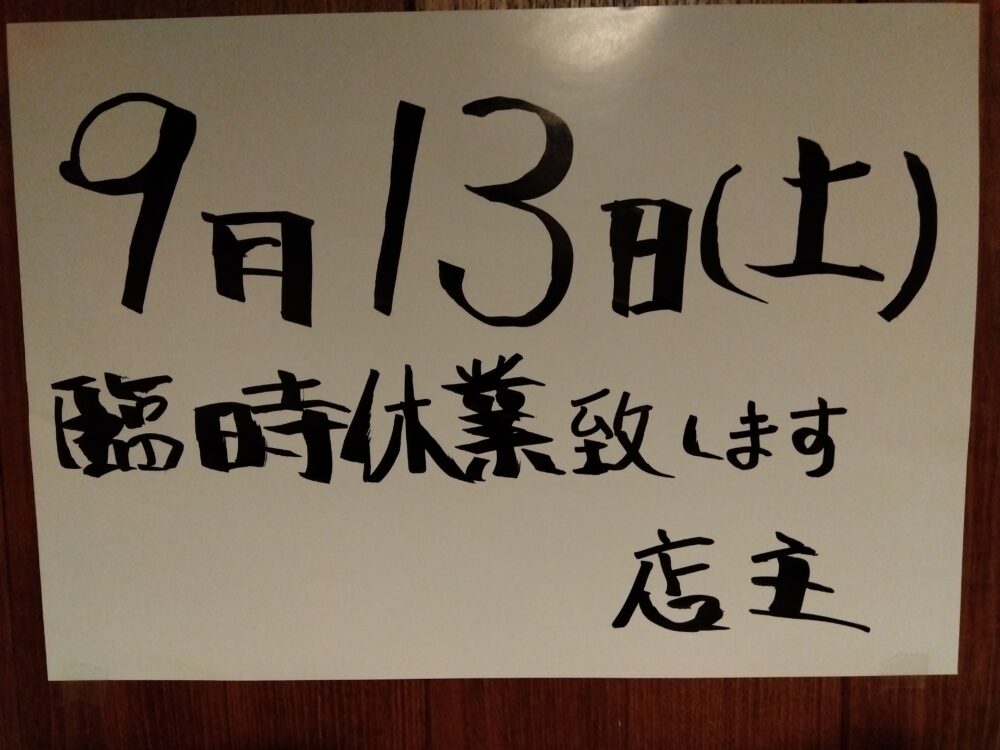 9月13日(土)
臨時休業致します
店主